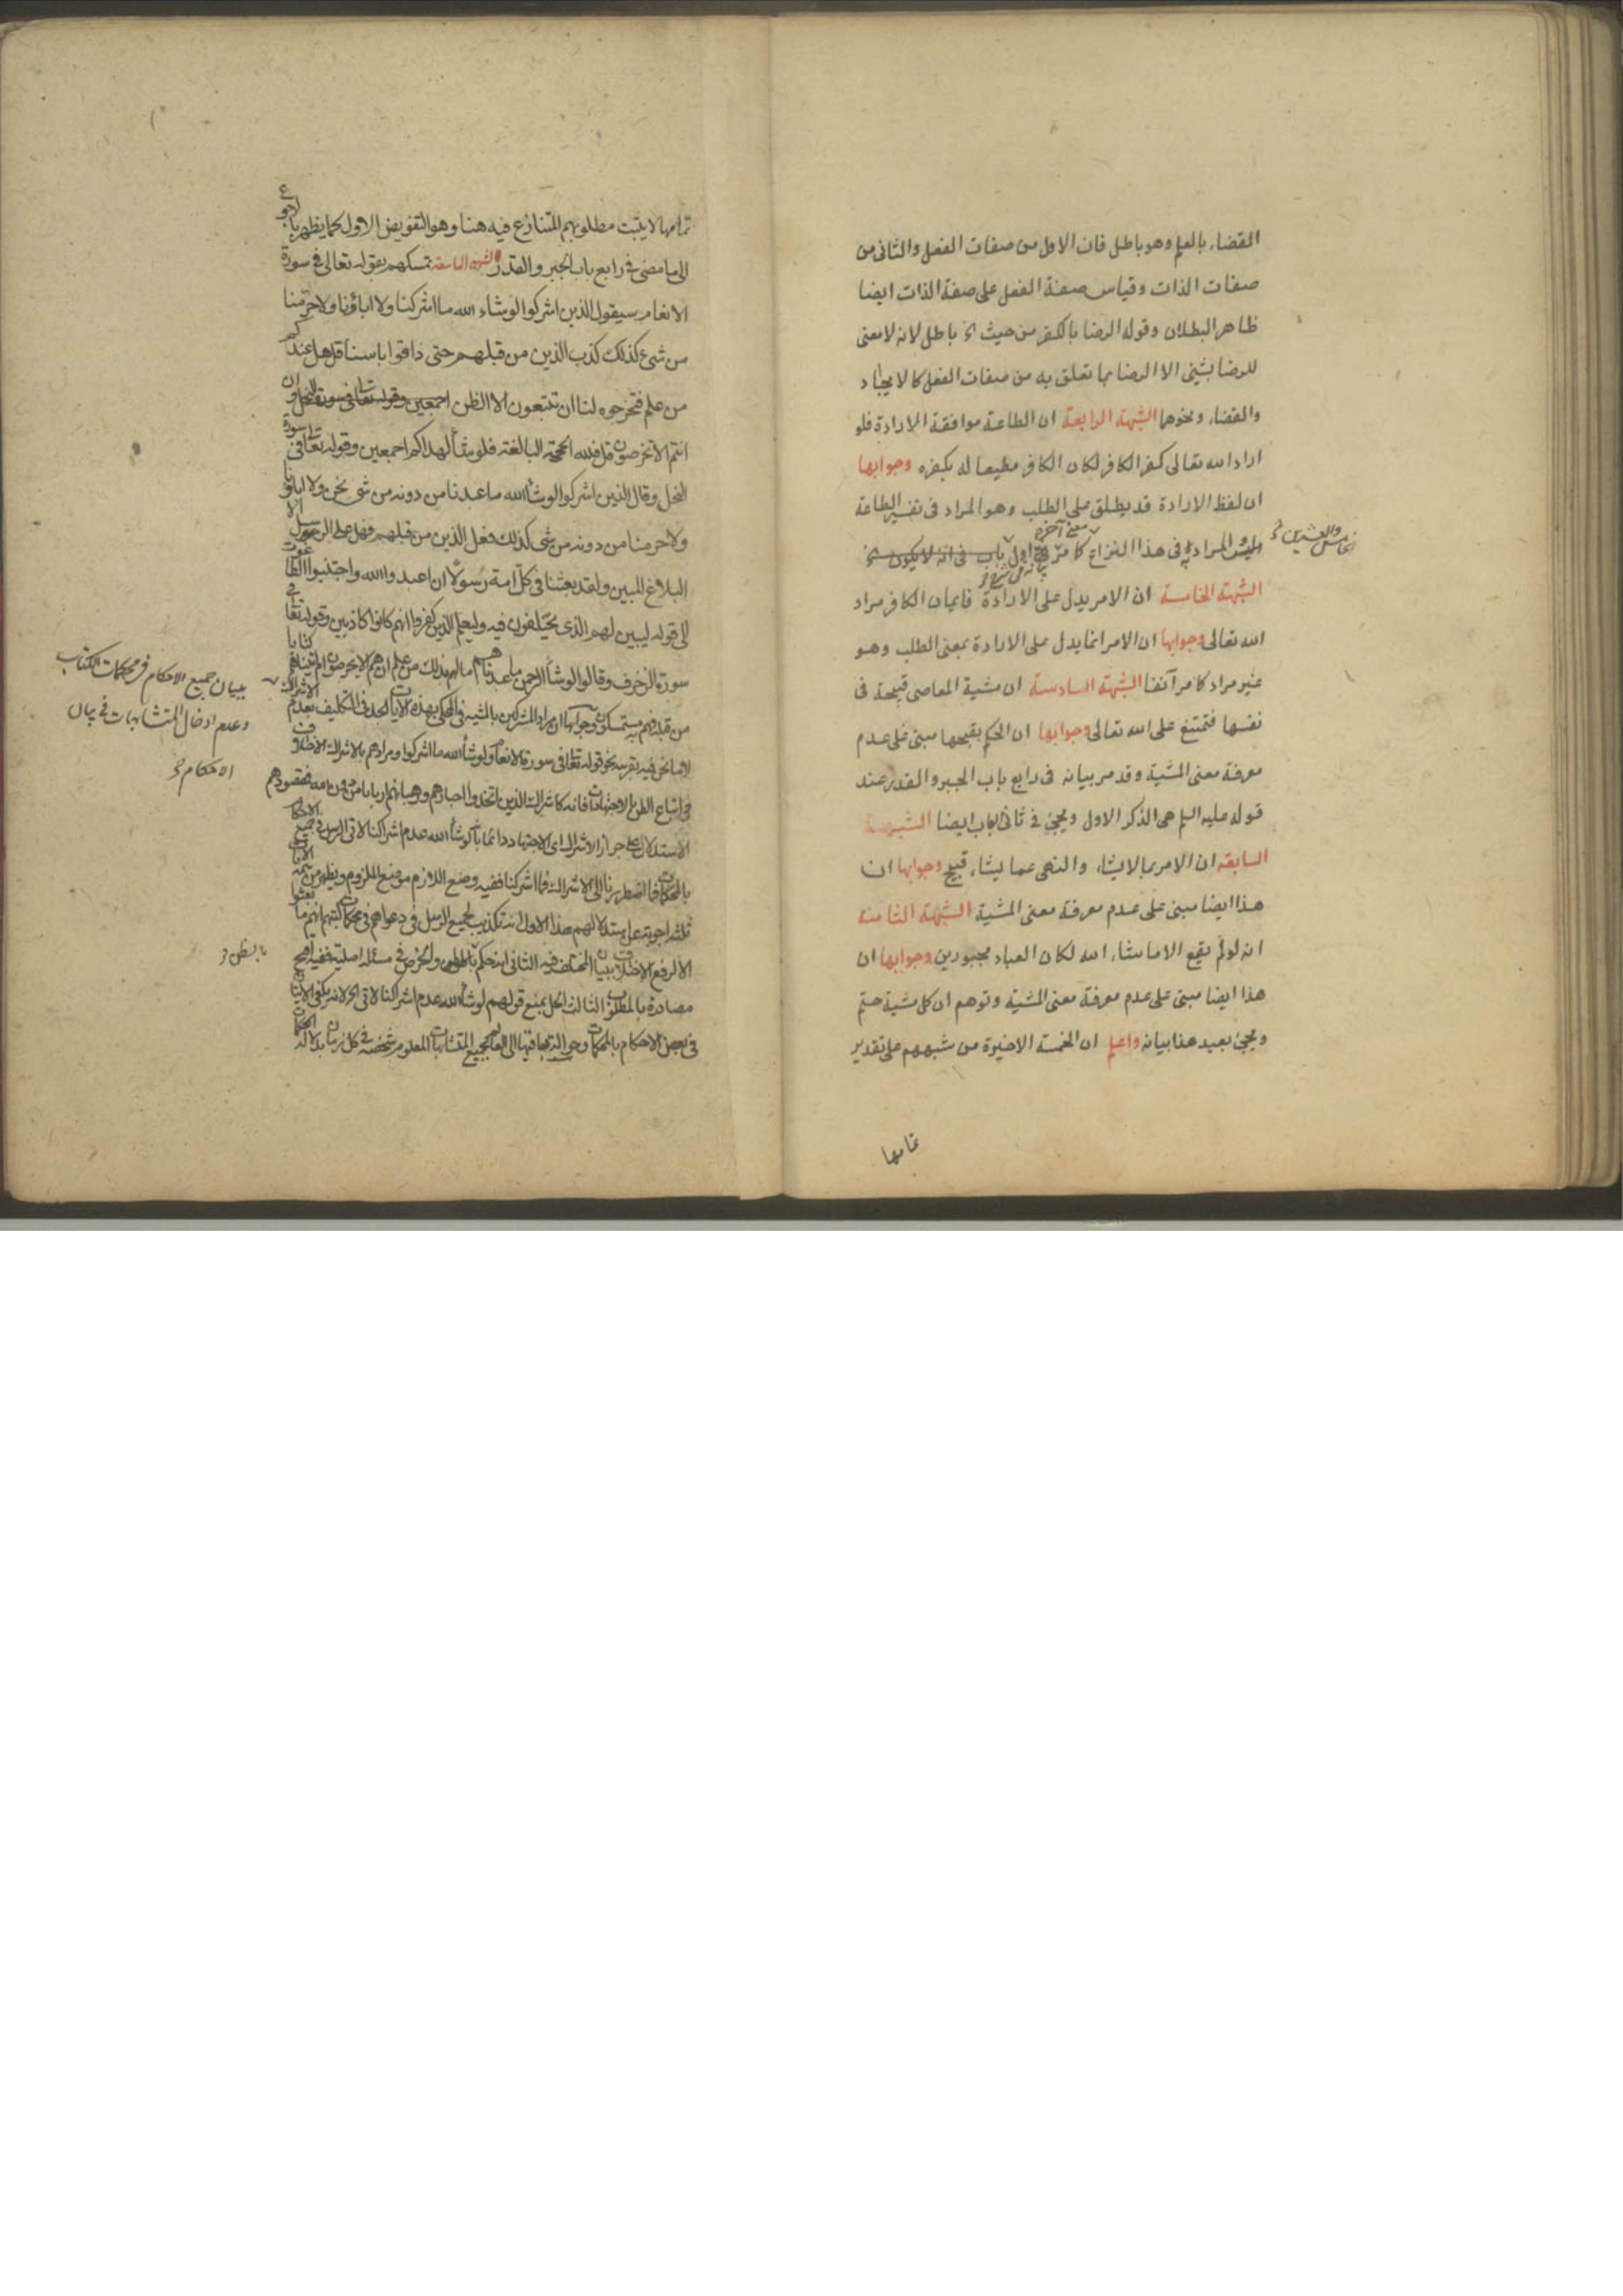 القضاء بالعلم وهو باطل فان الاول من صفات الفعل والثانى من
صفات الذات وقياس صفة الفعل على صفة الذات ايضا
ظاهر البطلان وقوله الرضا بالكفر من حيث الخ باطل لانه لا معنى
للرضا بشئ الا الرضا بما تعلق به من صفات الفعل كالايجاد
والقضاء ونحوها الشبهة الرابعة ان الطاعة موافقة الارادة فلو
اراد الله تعالى كفر الكافر لكان الكافر مطيعا له بكفره وجوابها
ان لفظ الارادة قد يطلق على الطلب وهو المراد فى تفسير الطاعة
وليس المراد به فى هذا النزاع كما مر فى اول باب فى انه لا يكون الخ
معنى آخر
الخامس والعشرين
الشبهة الخامسة ان الامر يدل على الارادة فايمان الكافر مراد
الله تعالى وجوابها ان الامر انما يدل على الارادة بمعنى الطلب وهو
غير مراد كما مر آنفا الشبهة السادسة ان مشية المعاصى قبيحة فى
نفسها فتمتنع على الله تعالى وجوابها ان الحكم بقبحها مبنى على عدم
معرفة معنى المشية وقد مر بيانه فى رابع باب الجبر والقدر عند
قوله عليه السلم هى الذكر الاول ويجئ فى ثانى الباب ايضا الشبهة
السابعة ان الامر بما لا يشاء والنهى عما يشاء قبيح وجوابها ان
هذا ايضا مبنى على عدم معرفة معنى المشية الشبهة الثامنة
انه لو لم يقع الا ما شاء الله لكان العباد مجبورين وجوابها ان
هذا ايضا مبنى على عدم معرفة معنى المشية وتوهم ان كل مشية حتم
ويجئ بعيد هذا بيانه واعلم ان الخمسة الاخيرة من شبههم على تقدير
تمامها
تمامها لا يثبت مطلوبهم المتنازع فيه هنا وهو التفويض الاول كما يظهر بالرجوع
الى ما مضى فى رابع باب الجبر والقدر الشبهة التاسعة تمسكهم بقوله تعالى فى سورة
الانعام سيقول الذين اشركوا لو شاء الله ما اشركنا ولا اباؤنا ولا حرمنا
من شئ كذلك كذب الذين من قبلهم حتى ذاقوا باسنا قل هل عندكم
من علم فتخرجوه لنا ان تتبعون الا الظن اجمعين وقوله تعالى فى سورة النحل وان
انتم الا تخرصون قل فلله الحجة البالغة فلو شاء لهداكم اجمعين وقوله تعالى فى سورة
النحل وقال الذين اشركوا لو شاء الله ما عبدنا من دونه من شئ نحن ولا اباؤنا
ولا حرمنا من دونه من شئ كذلك فعل الذين من قبلهم فهل على الرسل الا
البلاغ المبين ولقد بعثنا فى كل امة رسولا ان اعبدوا الله واجتنبوا الطاغوت
الى قوله ليبين لهم الذى يختلفون فيه وليعلم الذين كفروا انهم كانوا كاذبين وقوله تعالى فى
سورة الزخرف وقالوا لو شاء الرحمن ما عبدناهم ما لهم بذلك من علم ان هم الا يخرصون ام اتيناهم كتابا
من قبله فهم به مستمسكون وجوابها ان مراد المشركين بالمشية فى المحكى بهذه الايات الجد فى التكليف بعدم الاشراك
لا ما نحن فيه بقرينة نحو قوله تعالى فى سورة الانعام ولو شاء الله ما اشركوا ومرادهم بالاشراك الاختلاف
فى اتباع الظن بالاجتهادات فانه كاشراك الذين اتخذوا احبارهم ورهبانهم اربابا من دون الله فمقصودهم
الاستدلال على جواز الاشراك اى الاجتهاد دائما بانه لو شاء الله عدم اشراكنا لاتى الرسل فى جميع الاحكام
بالمحكمات فما اضطررنا الى الاشراك فما اشركنا ففيه وضع اللازم موضع الملزوم ويظهر من تتمة الايات
ثلثة اجوبة عن استدلالهم هذا الاول انه تكذيب لجميع الرسل فى دعواهم فى محكمات كتبهم انهم ما بعثوا
الا لرفع الاختلاف ببيان المختلف فيه الثانى انه حكم بالظن والخرص فى مسئلة اصلية ففيه اقبح
مصادرة بالمطلوب الثالث الحل بمنع قولهم لو شاء الله عدم اشراكنا لاتى الخ لانه يكفى الاتيان
فى بعض الاحكام بالمحكمات وحوالتهم فيها الى العالم بجميع المتشابهات المعلوم شخصه فى كل زمان بدلالة المحكمات
ببيان جميع الاحكام فى محكمات الكتاب
وعدم ادخال المتشابهات فى بيان
الاحكام
بالظن و